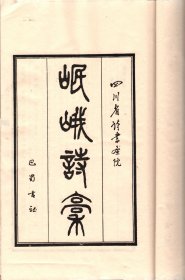 四川省诗书画院
岷峨詩稾
巴蜀書社